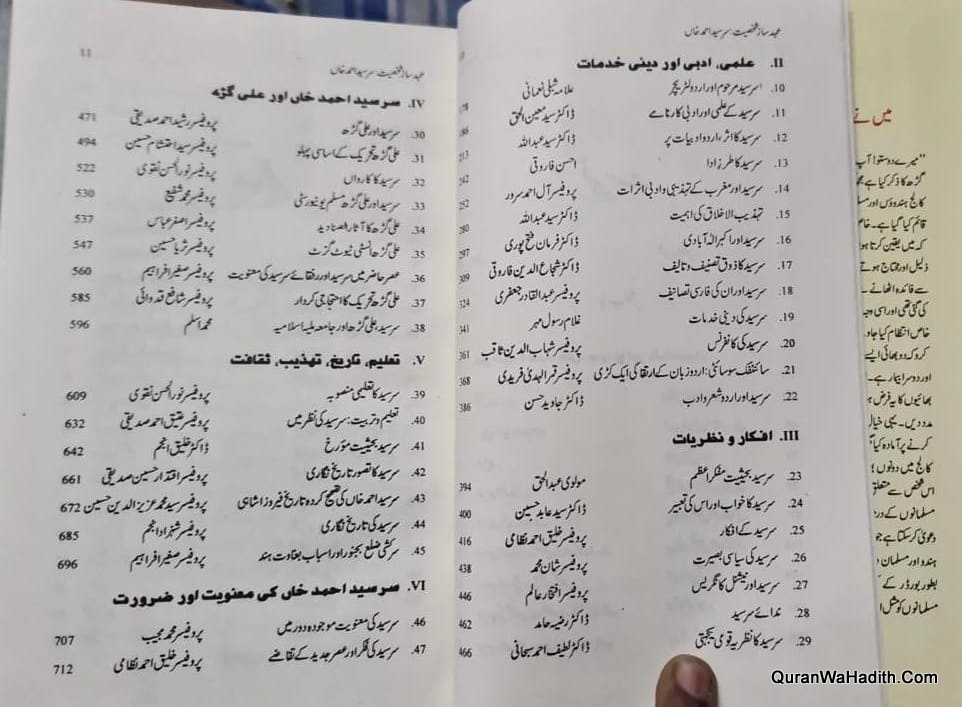 عہد ساز شخصیت: سرسید احمد خاں
II. علمی، ادبی اور دینی خدمات
10. سرسید مرحوم اور اردو لٹریچر علامہ شبلی نعمانی 178
11. سرسید کے علمی اور ادبی کارنامے ڈاکٹر سید معین الحق 186
12. سرسید کا اثر، اردو ادبیات پر ڈاکٹر سید عبداللہ 213
13. سرسید کا طرز ادا احسن فاروقی 242
14. سرسید اور مغرب کے تہذیبی و ادبی اثرات پروفیسر آل احمد سرور 252
15. تہذیب الاخلاق کی اہمیت ڈاکٹر سید عبداللہ 280
16. سرسید اور اکبر الہ آبادی ڈاکٹر فرمان فتح پوری 297
17. سرسید کا ذوق تصنیف و تالیف ڈاکٹر شجاع الدین فاروقی 309
18. سرسید اور ان کی فارسی تصانیف پروفیسر عبدالقادر جعفری 324
19. سرسید کی دینی خدمات غلام رسول مہر 341
20. سرسید کی کانفرنس پروفیسر شہاب الدین ثاقب 361
21. سائنٹفک سوسائٹی: اردو زبان کے ارتقا کی ایک کڑی پروفیسر قمر الہدیٰ فریدی 368
22. سرسید اور اردو شعر و ادب ڈاکٹر جاوید حسن 386
III. افکار و نظریات
23. سرسید بحیثیت مفکر اعظم مولوی عبدالحق 394
24. سرسید کا خواب اور اس کی تعبیر ڈاکٹر سید عابد حسین 400
25. سرسید کے افکار پروفیسر خلیق احمد نظامی 416
26. سرسید کی سیاسی بصیرت پروفیسر شان محمد 438
27. سرسید اور نیشنل کانگریس پروفیسر افتخار عالم 446
28. ندائے سرسید ڈاکٹر رضیہ حامد 462
29. سرسید کا نظریہ قومی یکجہتی ڈاکٹر لطیف احمد سبحانی 466
عہد ساز شخصیت: سرسید احمد خاں 11
IV. سرسید احمد خاں اور علی گڑھ
30. سرسید اور علی گڑھ پروفیسر رشید احمد صدیقی 471
31. علی گڑھ تحریک کے اساسی پہلو پروفیسر سید احتشام حسین 494
32. سرسید کا کارواں پروفیسر نور الحسن نقوی 522
33. سرسید اور علی گڑھ مسلم یونیورسٹی پروفیسر محمد شفیع 530
34. علی گڑھ کا آثار الصنادید پروفیسر اصغر عباس 537
35. علی گڑھ انسٹی ٹیوٹ گزٹ پروفیسر ثریا حسین 547
36. عصر حاضر میں سرسید اور رفقائے سرسید کی معنویت پروفیسر صغیر افراہیم 560
37. علی گڑھ تحریک کا احتجاجی کردار پروفیسر شافع قدوائی 585
38. سرسید، علی گڑھ اور جامعہ ملیہ اسلامیہ محمد اسلم 596
V. تعلیم، تاریخ، تہذیب، ثقافت
39. سرسید کا تعلیمی منصوبہ پروفیسر نور الحسن نقوی 609
40. تعلیم و تربیت: سرسید کی نظر میں پروفیسر عتیق احمد صدیقی 632
41. سرسید بحیثیت مؤرخ ڈاکٹر خلیق انجم 642
42. سرسید کا تصور تاریخ نگاری پروفیسر اقتدار حسین صدیقی 661
43. سرسید احمد خاں کی تصحیح کردہ تاریخ فیروز شاہی پروفیسر سید محمد عزیز الدین حسین 672
44. سرسید کی تاریخ نگاری پروفیسر شہزاد انجم 685
45. سرکشی ضلع بجنور اور اسباب بغاوت ہند پروفیسر صغیر افراہیم 696
VI. سرسید احمد خاں کی معنویت اور ضرورت
46. سرسید کی معنویت موجودہ دور میں پروفیسر محمد مجیب 707
47. سرسید کی فکر اور عصر جدید کے تقاضے پروفیسر خلیق احمد نظامی 712
میں نے
"میرے دوستو! آپ
گڑھ کا ذکر کیا ہے
کالج ہندوؤں اور
قائم کیا گیا ہے۔ خاص
کہ میں یقین کرتا ہوں
ذلیل اور محتاج ہوتے
سے فائدہ اٹھانے
کی گئی تھی اور اسی وجہ
خاص انتظام کیا جاوے
کرو کہ دو بھائی ایسے
اور دوسرا بیمار ہے۔
بھائیوں کا یہ فرض
مدد دیں۔ یہی خیال
کرنے پر آمادہ کیا
کالج میں دونوں
اس شخص سے متعلق
مسلمانوں کے
دعویٰ کر سکتا ہے
ہندو اور مسلمان
بطور بورڈر کے
مسلمانوں کو مثل
QuranWaHadith.Com